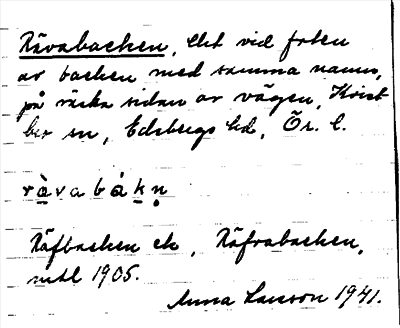 Rävabacken, lht vid foten
av backen med samma namn,
på västra sidan av vägen, Kvist
bro sn, Edsbergs hd, Ör. l.
ràvabákn̥
Räfbacken ek, Räfvabacken,
mtl 1905.
Anna Larsson 1941.